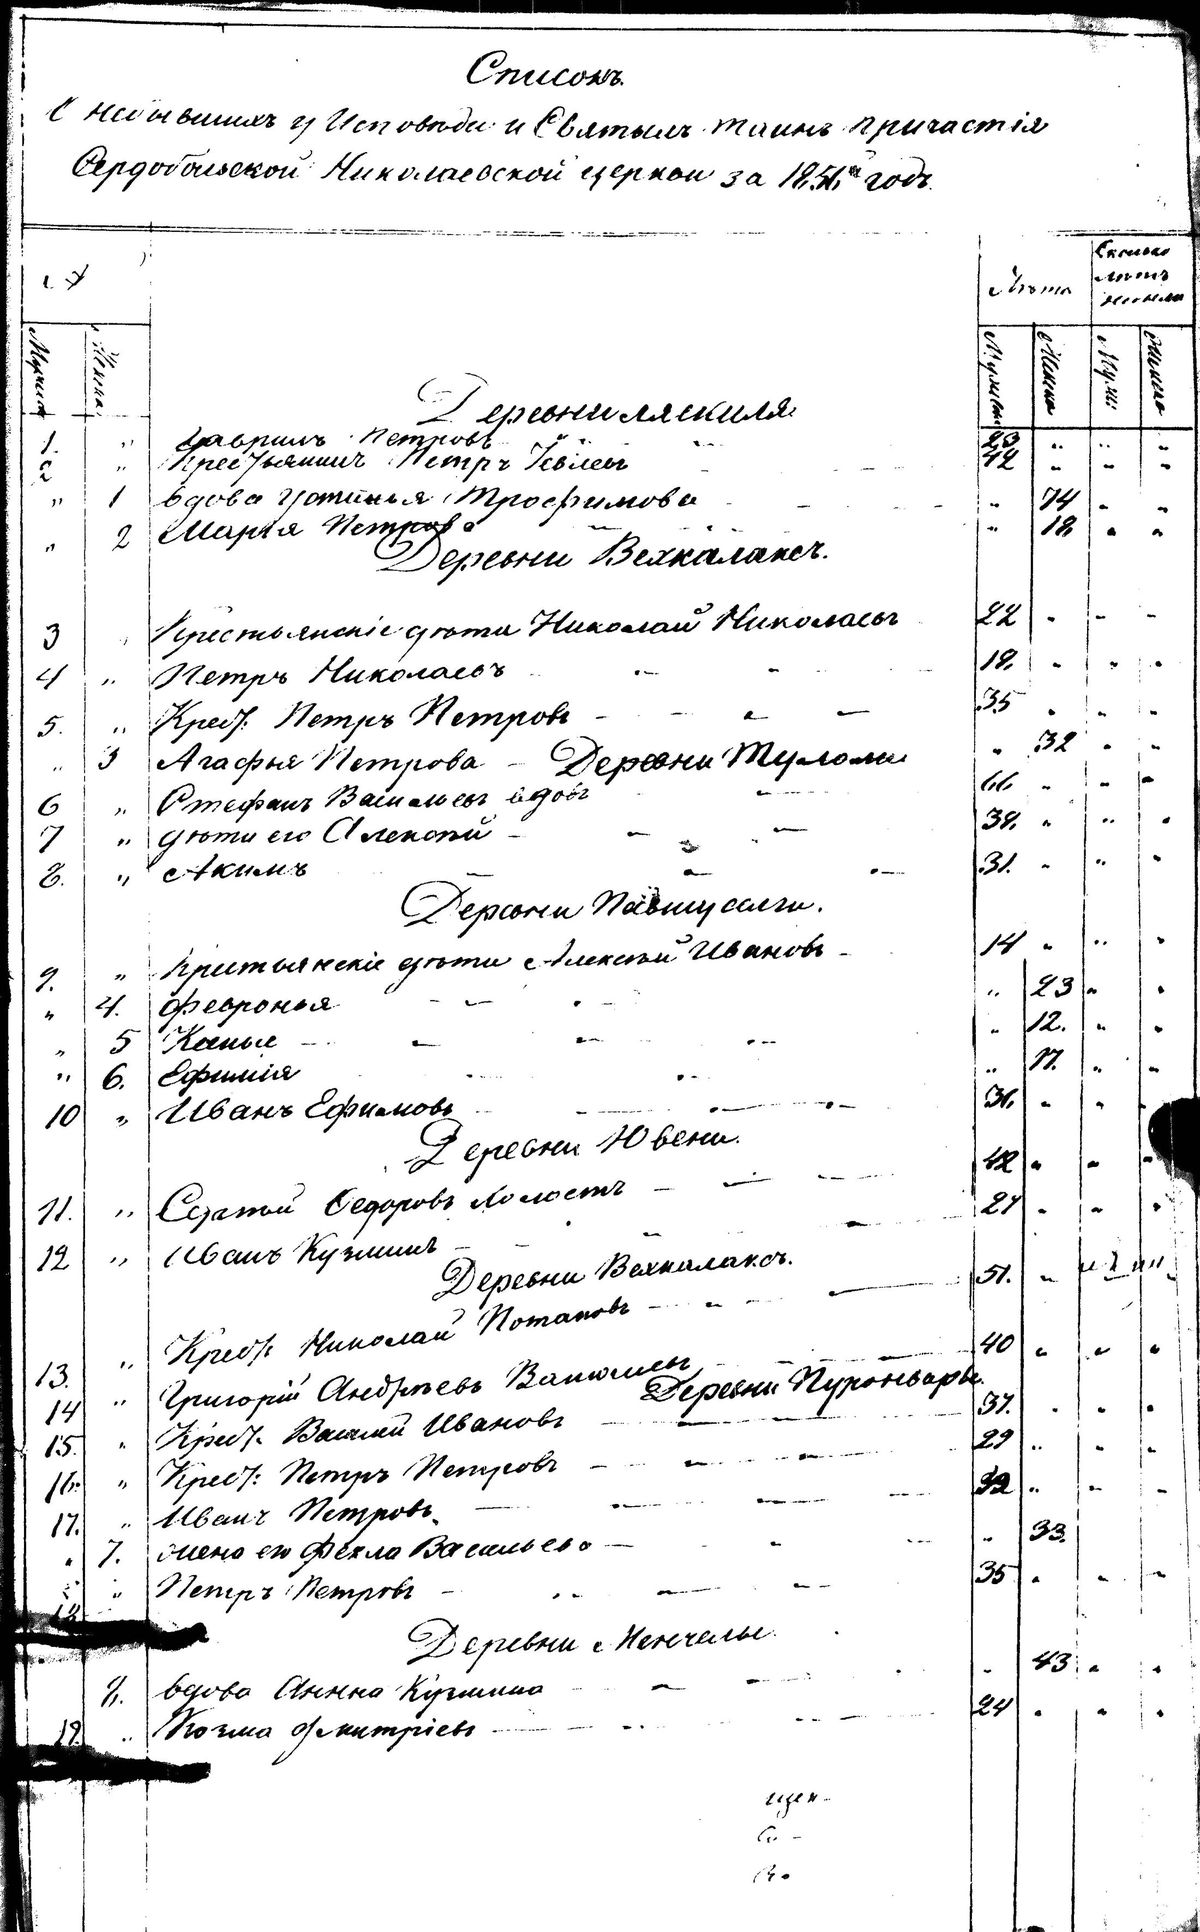 Списокъ
О небывшихъ у Исповѣди и Святыхъ таинъ причастія
Сердобольской Николаевской церкви за 1856й годъ.
№
Лѣта
Сколько лѣтъ
Мужска Женска
Мужска Женска Муж: Женска
Деревни Ляскиля
1. " Гавриилъ Петровъ 23 " " "
2 " Крестьянинъ Петръ 42 " " "
" 1 вдова Устинья Трофимова " 74 " "
" 2 Марья Петрова " 18 " "
Деревни Вехкалаксъ.
3 " Крестьянскіе дѣти Николай Николаевъ 22 " " "
4 " Петръ Николаевъ 18. " " "
5. " Крест: Петръ Петровъ 35 " " "
" 3 Агафья Петрова " 32 " "
Деревни Тулолы
6 " Стефанъ Васильевъ вдовъ 66 " " "
7 " дѣти его Алексѣй 38. " " "
8. " Акимъ 31. " " "
Деревни
9. " Крестьянскіе дѣти Алексѣй Ивановъ 14 " " "
" 4. Февронья " 23 " "
" 5 " 12. " "
" 6. Ефимія " 17. " "
10 " Иванъ Ефимовъ 36. " " "
Деревни Ювени.
11. " Федоровъ холостъ 42 " " "
12 " Иванъ Кузминъ 27 " " "
Деревни Вехкалаксъ.
13. " Крест: Николай Потаповъ 51. " " "
14 " Григорій Андрѣевъ 40 " " "
Деревни
15. " Крест. Василій Ивановъ 37. " " "
16. " Крест: Петръ Петровъ 29 " " "
17. " Иванъ Петровъ 32 " " "
" 7. жена его Фекла Васильева " 33.
18 " Петръ Петровъ 35 " " "
Деревни Менчелы
8. вдова Анна Кузмина " 43 " "
19. " Козма Дмитріевъ 24 " " "